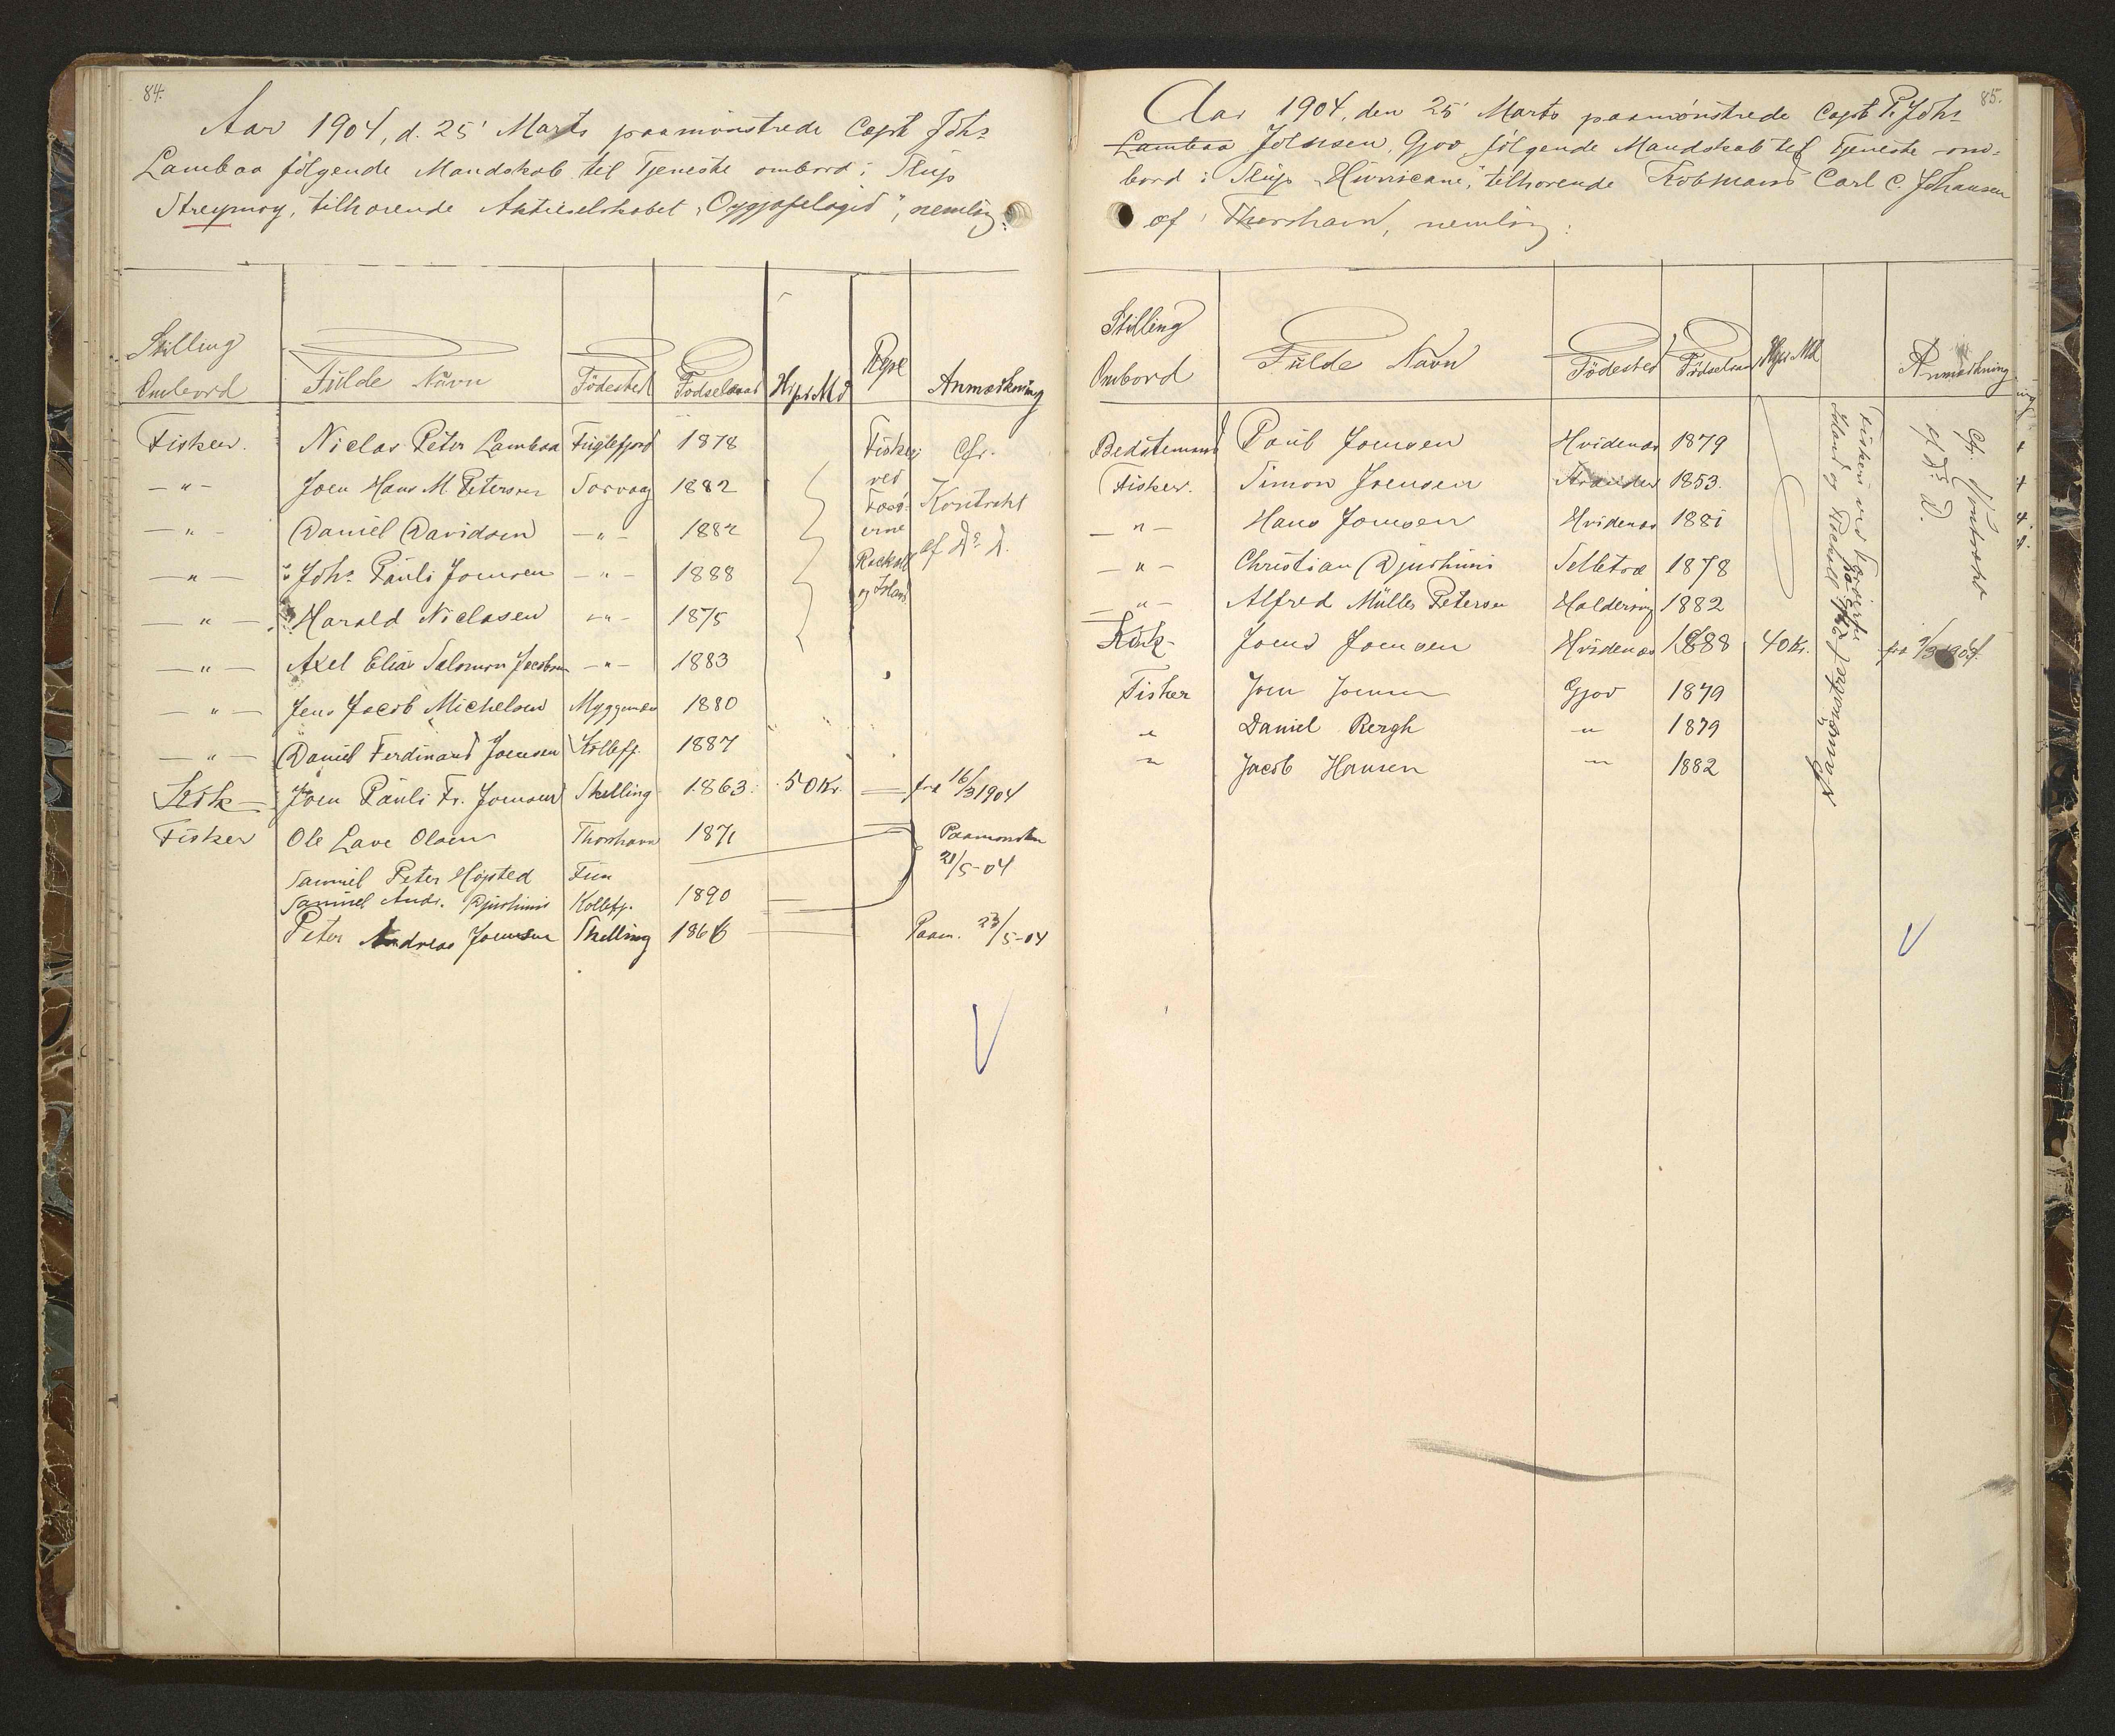 84.
Aar 1904, d. 25' Marts paamönstrede Capt Johs
Lambaa fölgende Mandskab til Tjeneste ombord i Slup
Streymoy, tilhorende Aktieselskabet "Oyggjafelagid", nemlig:
Stilling Ombord Fulde Navn Födested Födselsaar Hyre Md Rejse Anmærkning
Fisker. Niclas Peter Lambaa Fuglefjord 1878 Fiskeri Cfr.
-"- Joen Hans M Petersen Sorvaag 1882 ved Kontrakt
-"- Daniel Davidsen -"- 1882 Færö-erne af D. D.
-"- Johs Pauli Joensen -"- 1888 Rockall
-"- Harald Niclasen -"- 1875 og Island
-"- Axel Elias Salomon Jacobsen -"- 1883
-"- Jens Jacob Michelsen Myggenæs 1880
-"- Daniel Ferdinand Joensen Kollefj. 1887
Kok Joen Pauli Fr. Joensen Skelling 1863. 50 Kr. fra 16/3 1904
Fisker Ole Lave Olsen Thorshavn 1871 Paamonstr.
Samuel Peter Höjsted Fun 21/5-04
Samuel Andr. Djurhuus Kollefj. 1890
Peter Andreas Joensen Skelling 1866 Paam. 23/5-04
85.
Aar 1904, den 25' Marts paamönstrede Capt P. Johs
Lambaa Johnsen, Gjov fölgende Mandskab til Tjeneste om-
bord i Slup "Hurricane", tilhorende Kobmand Carl C. Johansen
af Thorshavn, nemlig:
Stilling Ombord Fulde Navn Födested Födselsaar Hyre Md Anmærkning
Bedstemand Paul Joensen Hvidenæs 1879
Fisker. Simon Joensen Strander 1853.
-"- Hans Joensen Hvidenæs 1881
-"- Christian Djurhuus Selletræ 1878
-"- Alfred Müller Petersen Haldersvig 1882
Kok Joens Joensen Hvidenæs 1888 40 Kr. fra 1/3 1904.
Fisker Joen Joensen Gjov 1879
" Daniel Bergh " 1879
" Jacob Hansen " 1882
Fiskeri ved Færöerne
Island og Rockall
Paamönstret
Cfr. Kontrakt
af D. D.